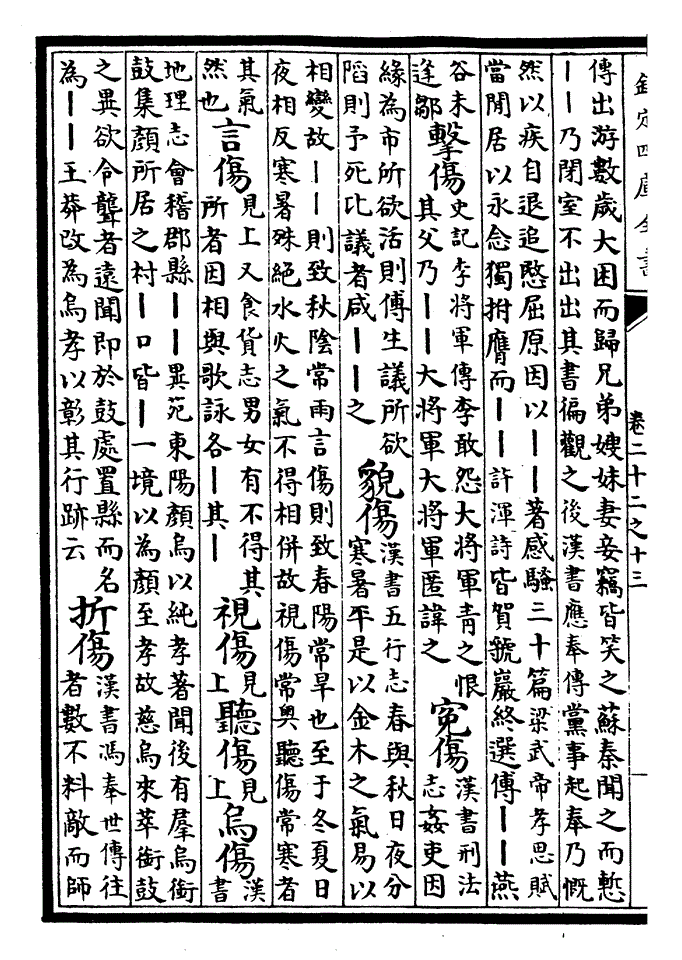 欽定四庫全書
卷二十二之十三
傳出游數歲大困而歸兄弟嫂妹妻妾竊皆笑之蘇秦聞之而慙
丨丨乃閉室不出出其書徧觀之後漢書應奉傳黨事起奉乃慨
然以疾自退追愍屈原因以丨丨著感騷三十篇梁武帝孝思賦
當閒居以永念獨拊膺而丨丨許渾詩皆賀虢巖終選傅丨丨燕
谷未
逢鄒
擊傷
史記李將軍傳李敢怨大將軍青之恨
其父乃丨丨大將軍大將軍匿諱之
寃傷
漢書刑法
志姦吏因
緣為市所欲活則傅生議所欲
陷則予死比議者咸丨丨之
貌傷
漢書五行志春與秋日夜分
寒暑平是以金木之氣易以
相變故丨丨則致秋陰常雨言傷則致春陽常旱也至于冬夏日
夜相反寒暑殊絕水火之氣不得相併故視傷常奧聽傷常寒者
其氣
然也
言傷
見上又食貨志男女有不得其
所者因相與歌詠各丨其丨
視傷
見
上
聽傷
見
上
烏傷
漢
書
地理志會稽郡縣丨丨異苑東陽顏烏以純孝著聞後有羣烏銜
鼓集顏所居之村丨口皆丨一境以為顏至孝故慈烏來萃銜鼓
之異欲令聾者遠聞即於鼓處置縣而名
為丨丨王莽改為烏孝以彰其行跡云
折傷
漢書馮奉世傳往
者數不料敵而師